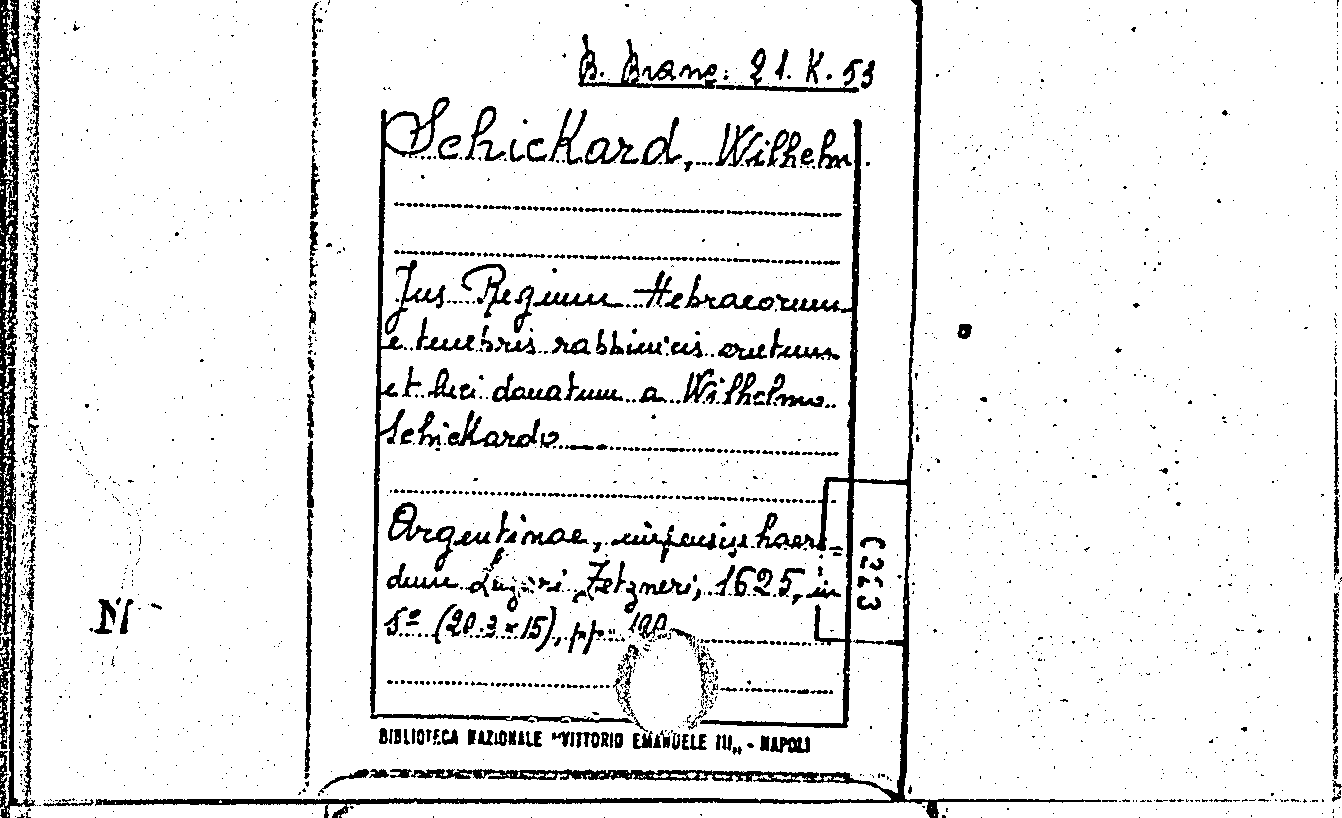 B. Branc. 21. K. 53
Schickard, Wilhelm.
Jus Regium Hebraeorum
e tenebris rabbinicis erutum
et luci donatum a Wilhelmo
Schickardo
Argentinae, impensis haere=
dum Lazari Zetzneri, 1625, in
(20.3 × 15), pp. 190
C223
BIBLIOTECA NAZIONALE "VITTORIO EMANUELE III„ - NAPOLI
N